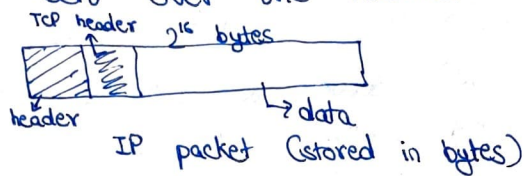 TCP header
2^16 bytes
header
data
IP packet (stored in bytes)